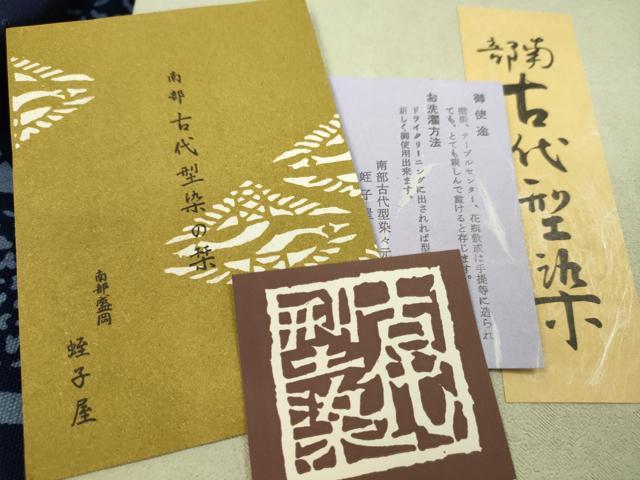 南部 古代型染の栞
南部盛岡
蛭子屋
御使途
壁掛、テーブルセンター、花瓶敷或は手提等に造られ
ても、とても親しんで戴けると存じます。
お洗濯方法
ドライクリーニングに出されれば型
新しく御使用出来ます。
南部古代型染々元
蛭子屋
南部
古代型染
古代
型染